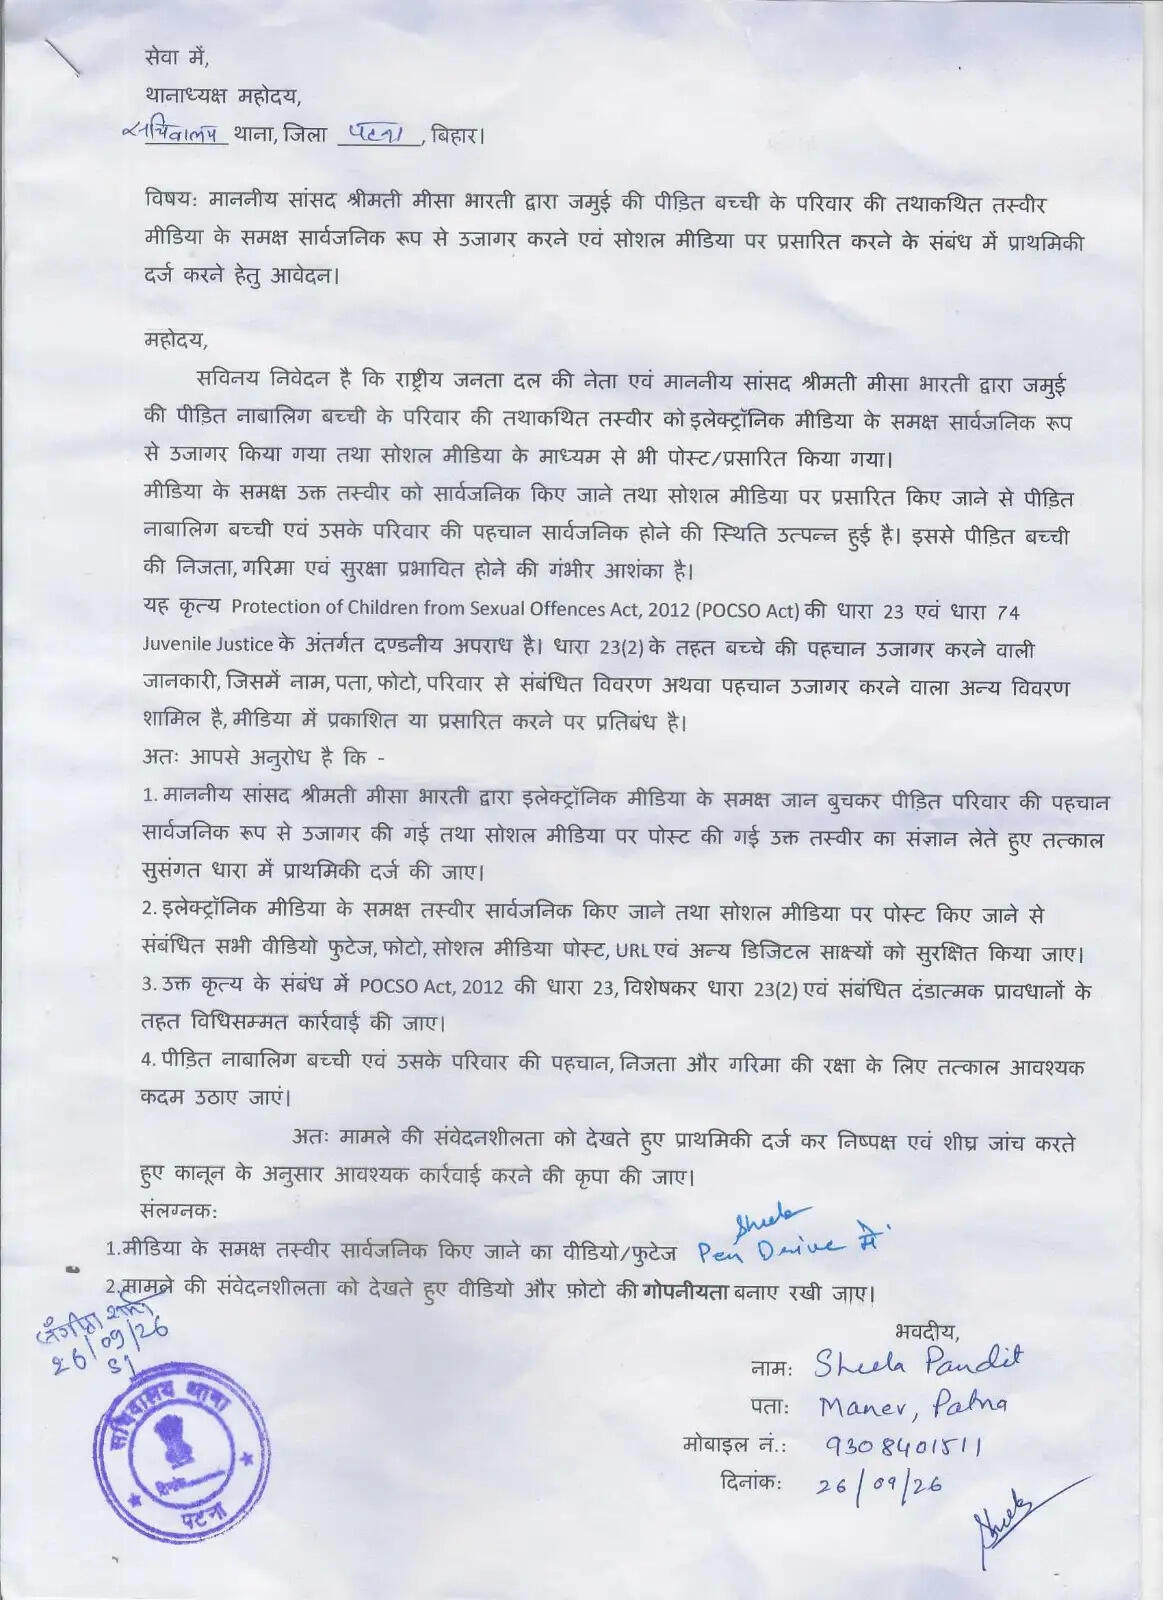 सेवा में,
थानाध्यक्ष महोदय,
सचिवालय थाना, जिला पटना, बिहार।
विषय: माननीय सांसद श्रीमती मीसा भारती द्वारा जमुई की पीड़ित बच्ची के परिवार की तथाकथित तस्वीर
मीडिया के समक्ष सार्वजनिक रूप से उजागर करने एवं सोशल मीडिया पर प्रसारित करने के संबंध में प्राथमिकी
दर्ज करने हेतु आवेदन।
महोदय,
सविनय निवेदन है कि राष्ट्रीय जनता दल की नेता एवं माननीय सांसद श्रीमती मीसा भारती द्वारा जमुई
की पीड़ित नाबालिग बच्ची के परिवार की तथाकथित तस्वीर को इलेक्ट्रॉनिक मीडिया के समक्ष सार्वजनिक रूप
से उजागर किया गया तथा सोशल मीडिया के माध्यम से भी पोस्ट/प्रसारित किया गया।
मीडिया के समक्ष उक्त तस्वीर को सार्वजनिक किए जाने तथा सोशल मीडिया पर प्रसारित किए जाने से पीड़ित
नाबालिग बच्ची एवं उसके परिवार की पहचान सार्वजनिक होने की स्थिति उत्पन्न हुई है। इससे पीड़ित बच्ची
की निजता, गरिमा एवं सुरक्षा प्रभावित होने की गंभीर आशंका है।
यह कृत्य Protection of Children from Sexual Offences Act, 2012 (POCSO Act) की धारा 23 एवं धारा 74
Juvenile Justice के अंतर्गत दण्डनीय अपराध है। धारा 23(2) के तहत बच्चे की पहचान उजागर करने वाली
जानकारी, जिसमें नाम, पता, फोटो, परिवार से संबंधित विवरण अथवा पहचान उजागर करने वाला अन्य विवरण
शामिल है, मीडिया में प्रकाशित या प्रसारित करने पर प्रतिबंध है।
अतः आपसे अनुरोध है कि -
1. माननीय सांसद श्रीमती मीसा भारती द्वारा इलेक्ट्रॉनिक मीडिया के समक्ष जान बुचकर पीड़ित परिवार की पहचान
सार्वजनिक रूप से उजागर की गई तथा सोशल मीडिया पर पोस्ट की गई उक्त तस्वीर का संज्ञान लेते हुए तत्काल
सुसंगत धारा में प्राथमिकी दर्ज की जाए।
2. इलेक्ट्रॉनिक मीडिया के समक्ष तस्वीर सार्वजनिक किए जाने तथा सोशल मीडिया पर पोस्ट किए जाने से
संबंधित सभी वीडियो फुटेज, फोटो, सोशल मीडिया पोस्ट, URL एवं अन्य डिजिटल साक्ष्यों को सुरक्षित किया जाए।
3. उक्त कृत्य के संबंध में POCSO Act, 2012 की धारा 23, विशेषकर धारा 23(2) एवं संबंधित दंडात्मक प्रावधानों के
तहत विधिसम्मत कार्रवाई की जाए।
4. पीड़ित नाबालिग बच्ची एवं उसके परिवार की पहचान, निजता और गरिमा की रक्षा के लिए तत्काल आवश्यक
कदम उठाए जाएं।
अतः मामले की संवेदनशीलता को देखते हुए प्राथमिकी दर्ज कर निष्पक्ष एवं शीघ्र जांच करते
हुए कानून के अनुसार आवश्यक कार्रवाई करने की कृपा की जाए।
संलग्नक:
Sheela
1.मीडिया के समक्ष तस्वीर सार्वजनिक किए जाने का वीडियो/फुटेज Pen Drive में
2.मामले की संवेदनशीलता को देखते हुए वीडियो और फ़ोटो की गोपनीयता बनाए रखी जाए।
26/09/26
SI
सचिवालय थाना
दिनांक
पटना
भवदीय,
नाम: Sheela Pandit
पता: Maner, Patna
मोबाइल नं.: 9308401511
दिनांक: 26/09/26
Sheela